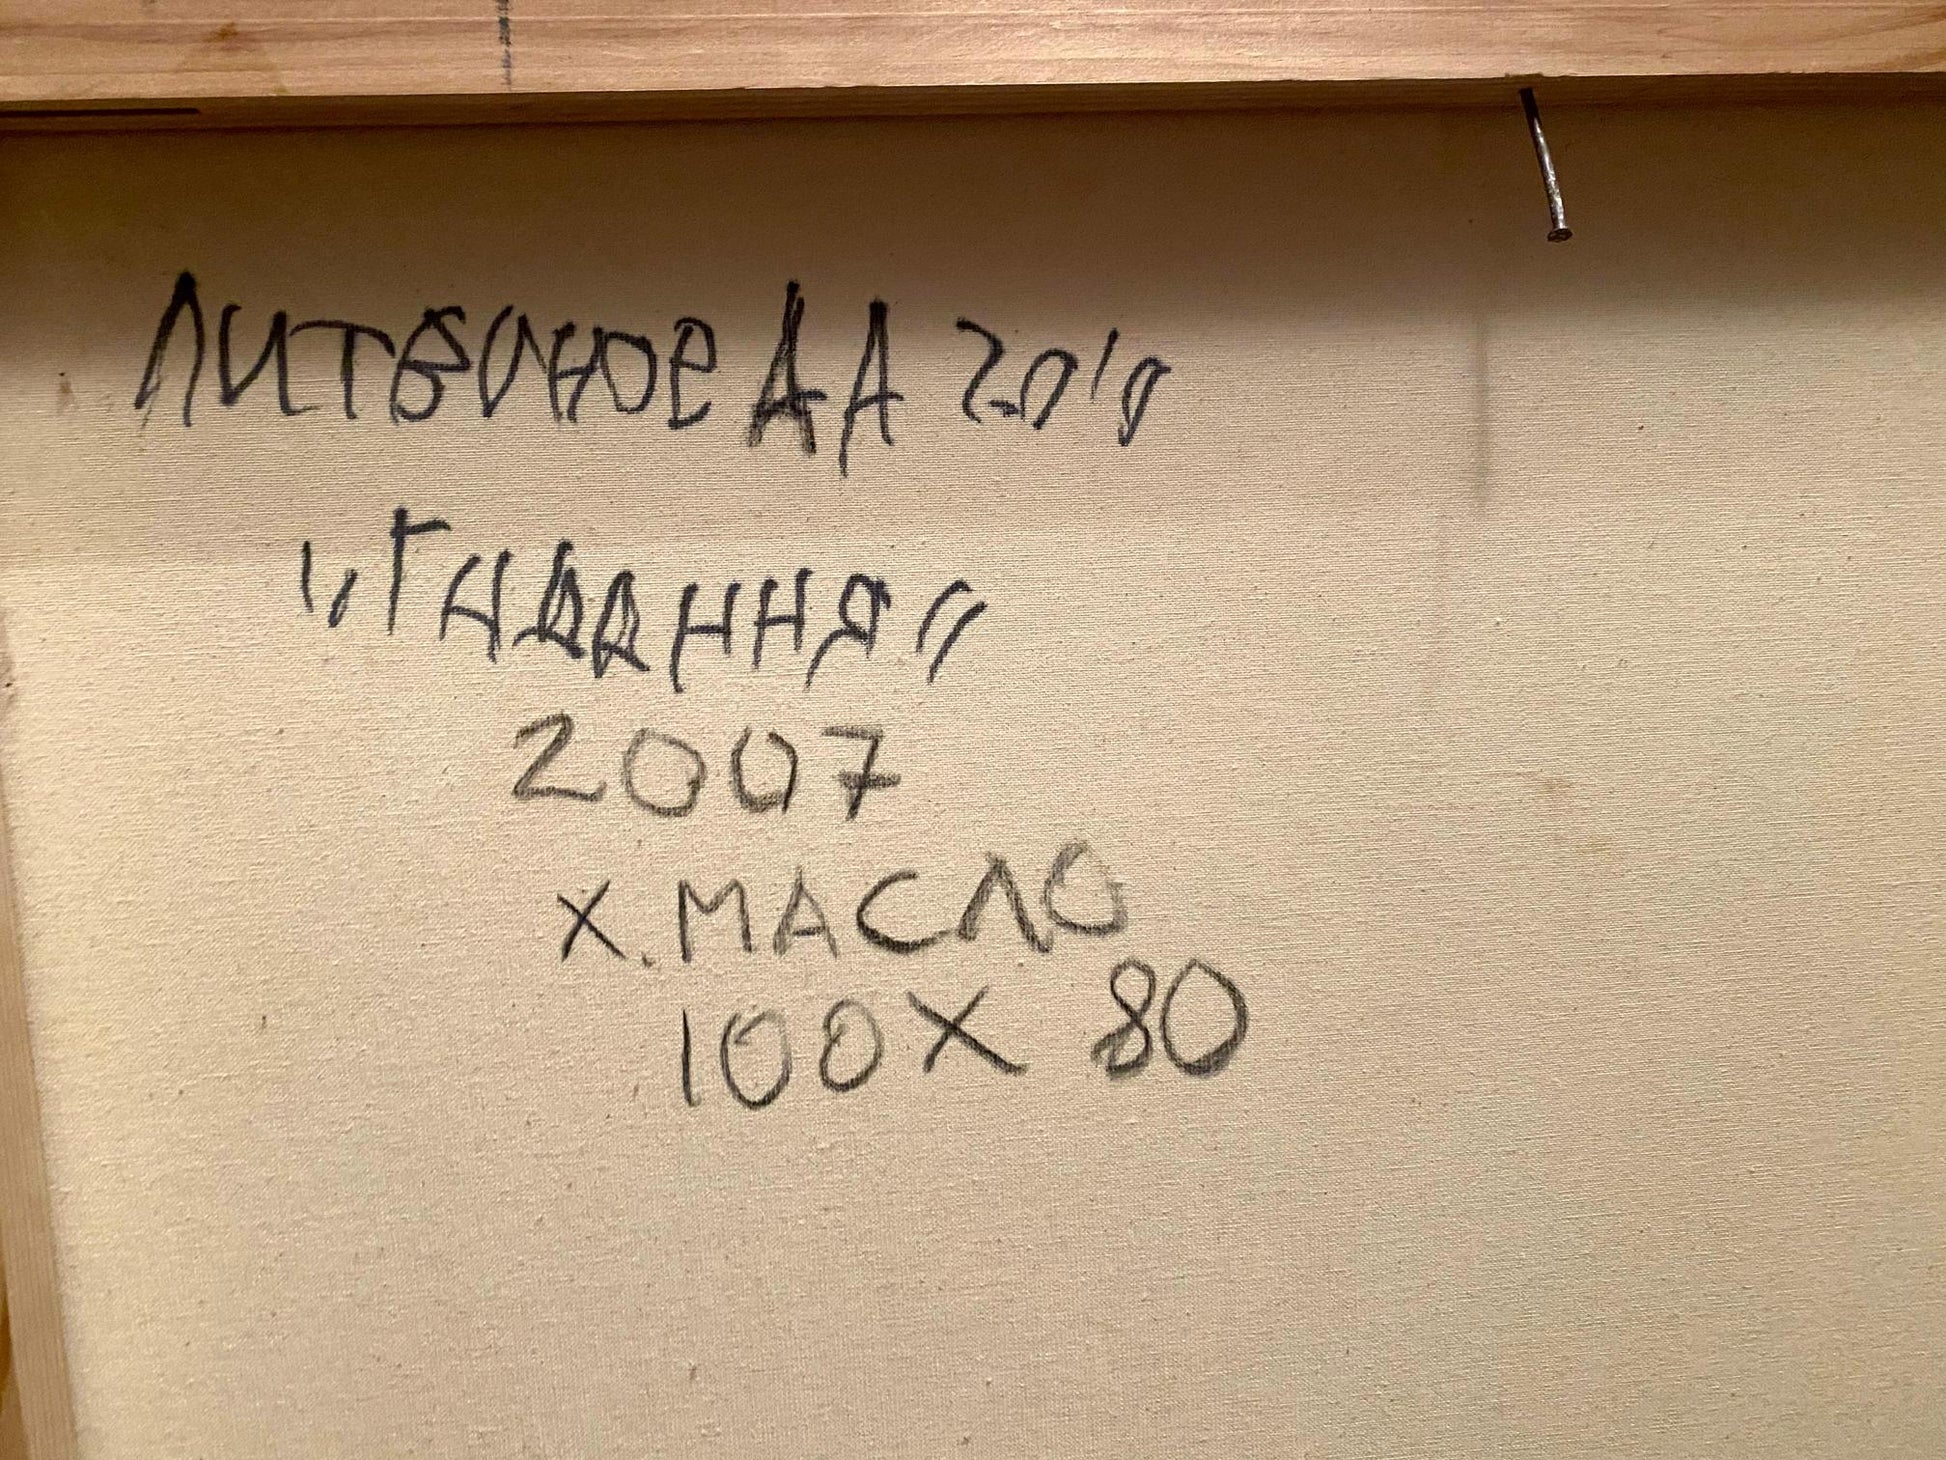 ЛИТВИНОВ
"ГАДАННЯ"
2007
Х. МАСЛО
100 Х 80